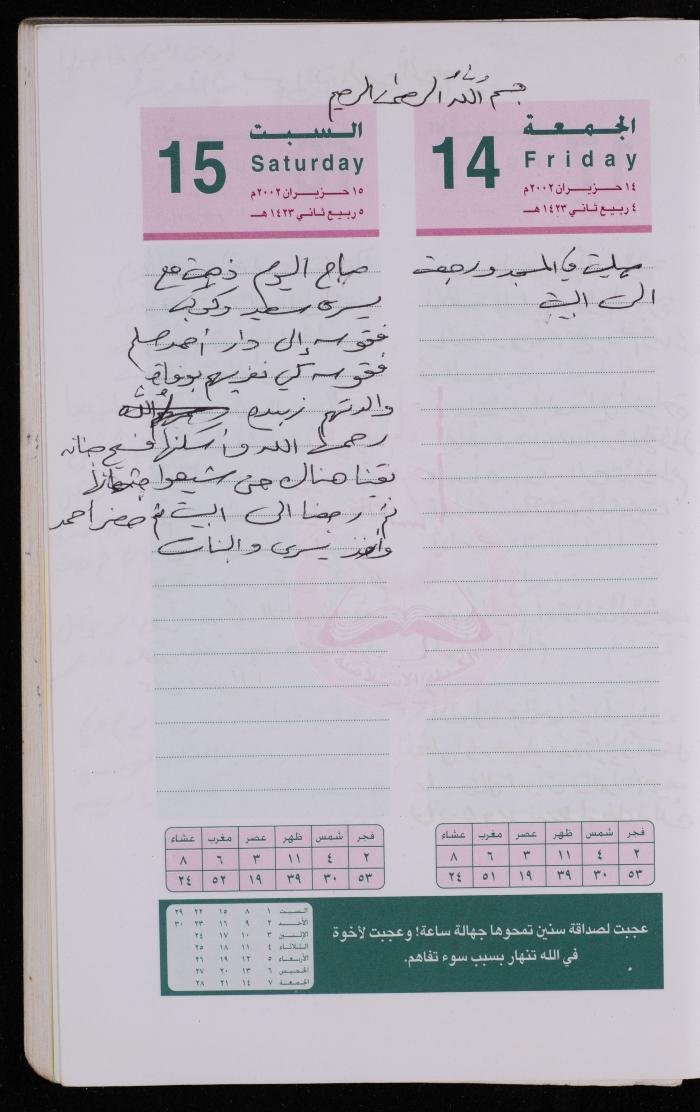 بسم الله الرحمن الرحيم
الجمعة
14
Friday
١٤ حـزيـران ٢٠٠٢م
٤ ربيع ثاني ١٤٢٣ هـ
صليت في المسجد ورجعت
الى البيت
السبت
15
Saturday
١٥ حـزيـران ٢٠٠٢م
٥ ربيع ثاني ١٤٢٣ هـ
صباح اليوم ذهبت مع
يسرى سعيد وكوكب
فقوسه إلى دار أحمد
فقوسه كي نعزيهم بوفاة
والدتهم زبيده
رحمها الله وأسكنها فسيح جنانه
بقينا هناك حتى شيعوا جثمانها
ثم رجعنا الى البيت ثم حضر أحمد
وأخذ يسرى والبنات
الكتلة الاسلامية
فجر شمس ظهر عصر مغرب عشاء
٢ ٤ ١١ ٣ ٦ ٨
٥٣ ٣٠ ٣٩ ١٩ ٥١ ٢٤
فجر شمس ظهر عصر مغرب عشاء
٢ ٤ ١١ ٣ ٦ ٨
٥٣ ٣٠ ٣٩ ١٩ ٥٢ ٢٤
عجبت لصداقة سنين تمحوها جهالة ساعة! وعجبت لأخوة
في الله تنهار بسبب سوء تفاهم.
السبت ١ ٨ ١٥ ٢٢ ٢٩
الأحد ٢ ٩ ١٦ ٢٣ ٣٠
الإثنين ٣ ١٠ ١٧ ٢٤
الثلاثاء ٤ ١١ ١٨ ٢٥
الأربعاء ٥ ١٢ ١٩ ٢٦
الخميس ٦ ١٣ ٢٠ ٢٧
الجمعة ٧ ١٤ ٢١ ٢٨